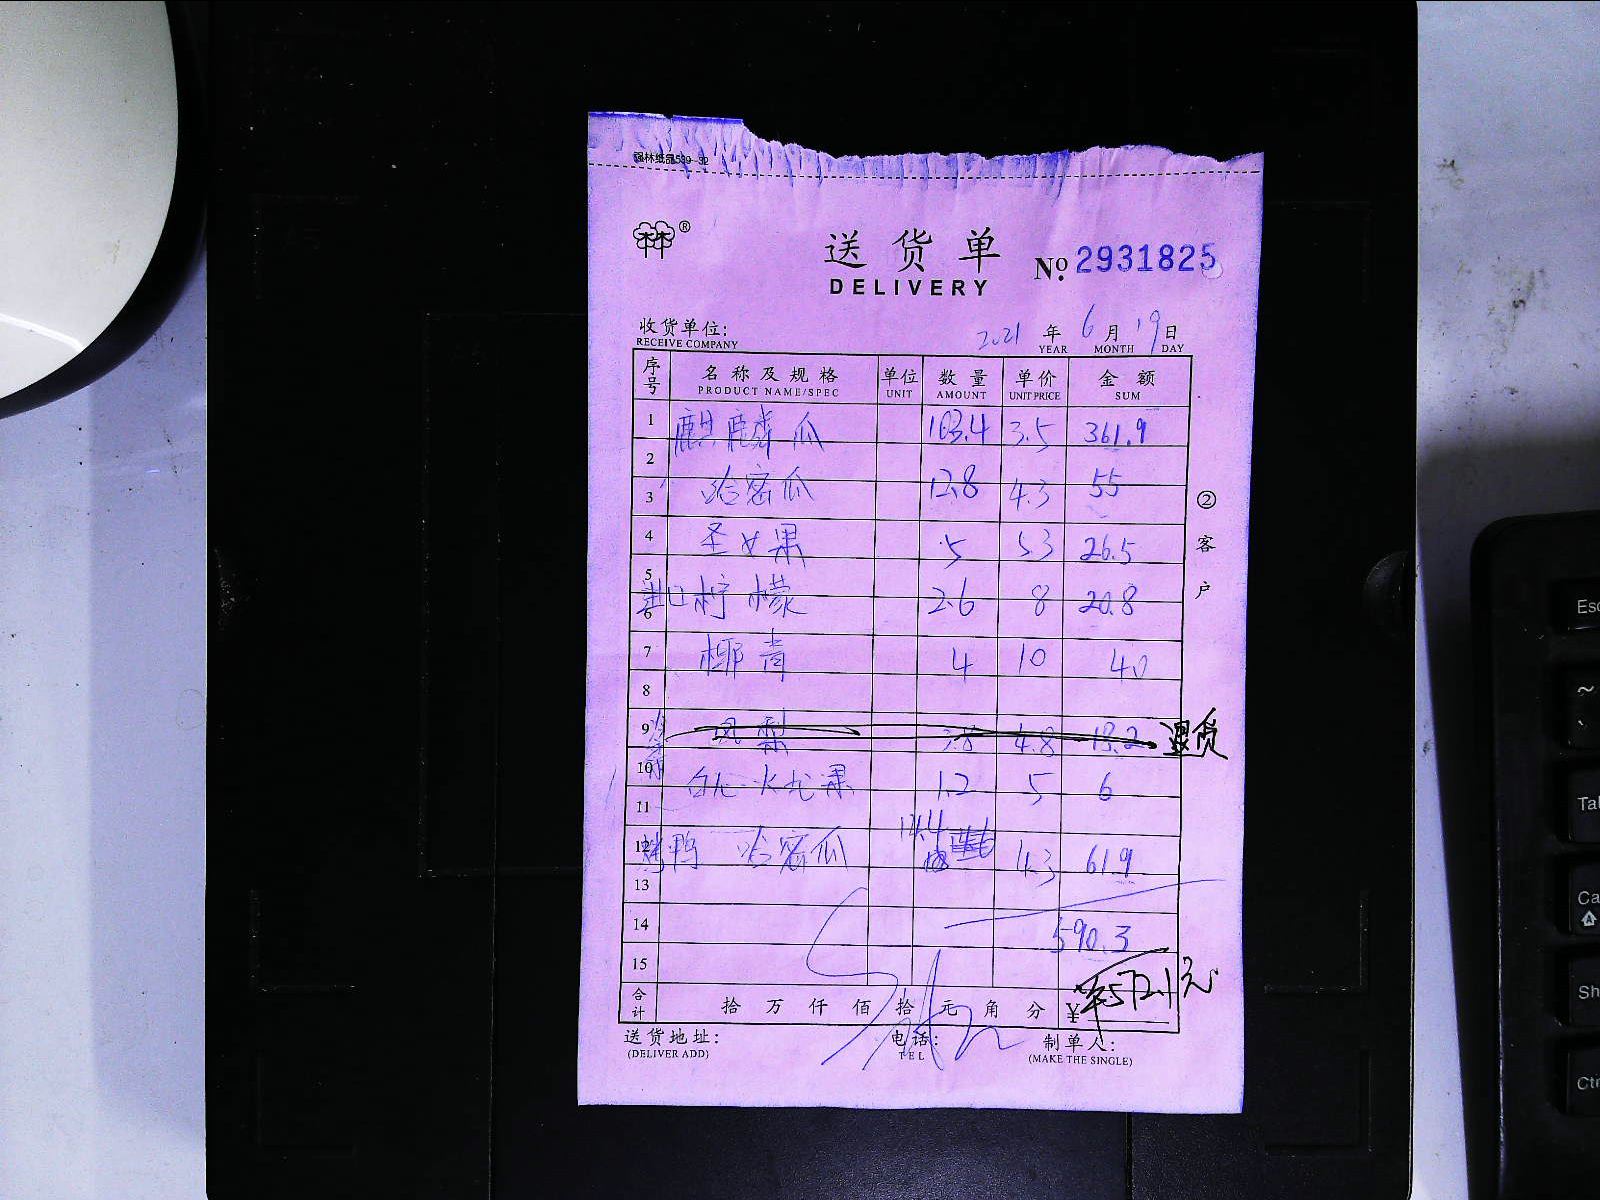 强林纸品539-32
®
送货单
DELIVERY
№ 2931825
收货单位:
RECEIVE COMPANY
2021 年 6 月 19 日
YEAR MONTH DAY
序号 名称及规格 单位 数量 单价 金额
PRODUCT NAME/SPEC UNIT AMOUNT UNIT PRICE SUM
1 麒麟瓜 103.4 3.5 361.9
2
3 哈密瓜 12.8 4.3 55
4 圣女果 5 5.3 26.5
5
进口柠檬 2.6 8 20.8
6
7 椰青 4 10 40
8
9 凤梨 3.8 4.8 18.2 退货
10 白心火龙果 1.2 5 6
11
12 烤鸭 哈密瓜 14.4 4.3 61.9
13
14 590.3
15
合计 拾万仟佰拾元角分 ¥ 572.1元
②客户
送货地址:
(DELIVER ADD)
电话:
TEL
制单人:
(MAKE THE SINGLE)
Esc
~
Tab
Ca
Sh
Ctr